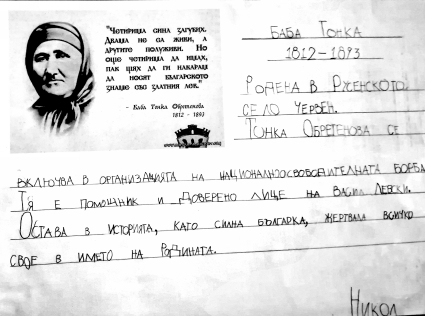 "Четирима сина загубих.
Двама не са живи, а
другите полуживи. Но
още четирима да имах,
пак щях да ги накарам
да носят българското
знаме със златния лев."
- Баба Тонка Обретенова
1812 - 1893
БАБА ТОНКА
1812-1893
РОДЕНА В РЖЕНСКОТО
СЕЛО ЧЕРВЕН.
ТОНКА ОБРЕТЕНОВА СЕ
ВКЛЮЧВА В ОРГАНИЗАЦИЯТА НА НАЦИОНАЛНООСВОБОДИТЕЛНАТА БОРБА
ТЯ Е ПОМОЩНИК И ДОВЕРЕНО ЛИЦЕ НА ВАСИЛ ЛЕВСКИ.
ОСТАВА В ИСТОРИЯТА, КАТО СИЛНА БЪЛГАРКА, ЖЕРТВАЛА ВСИЧКО
СВОЕ В ИМЕТО НА РОДИНАТА.
НИКОЛ